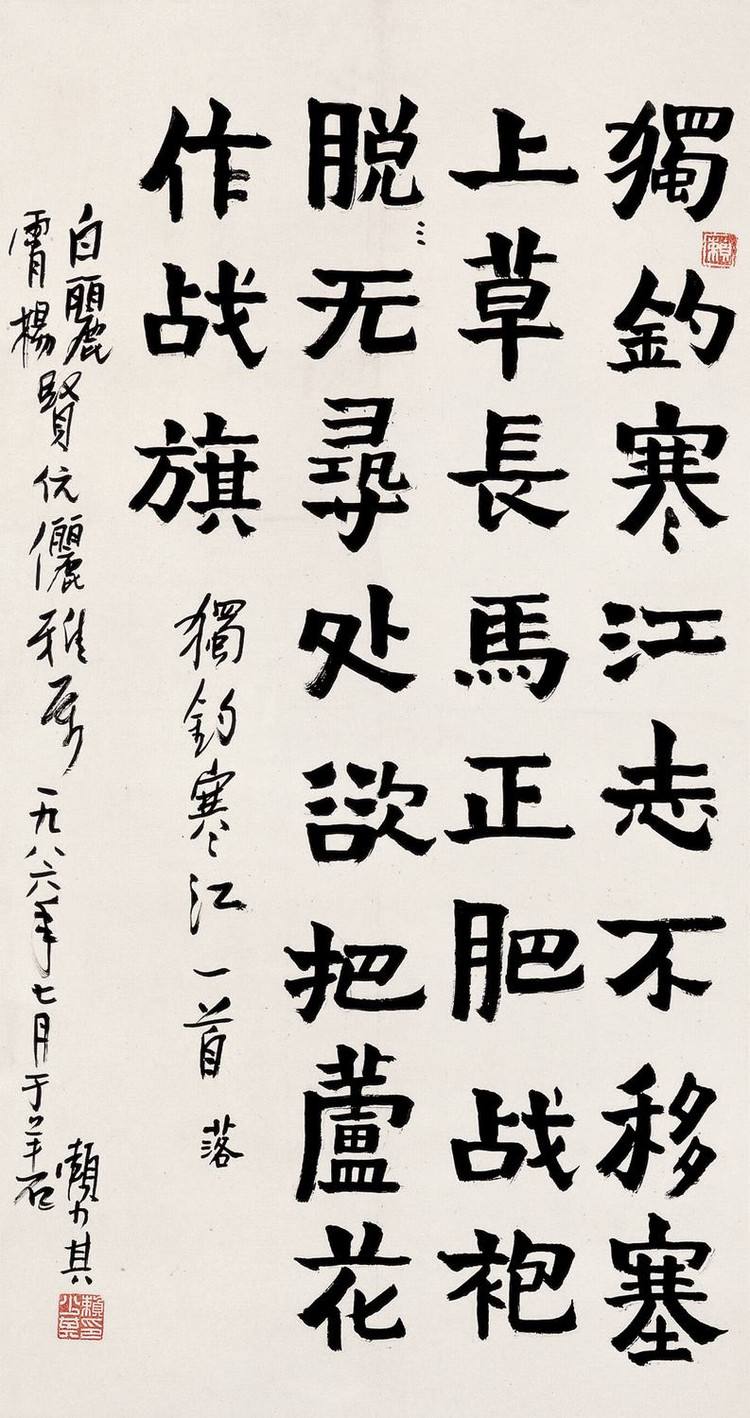 獨釣寒江志不移塞
上草長馬正肥战袍
脱无尋处欲把蘆花
作战旗
獨釣寒江一首 落
白麗
霄楊
賢伉儷雅属
一九八六年七月于羊石
賴少其
賴